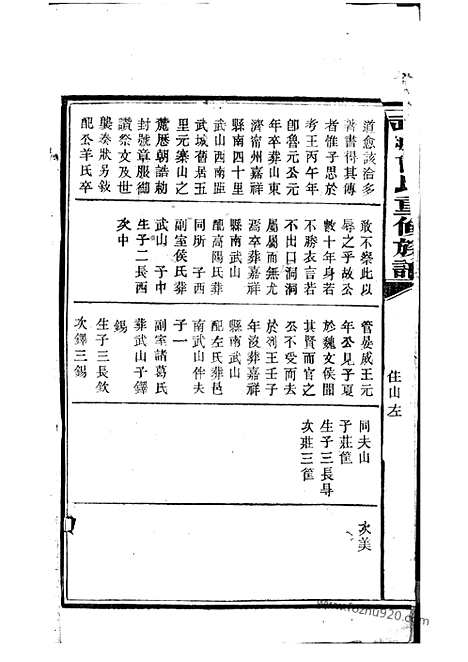 曾氏重修族譜
佳山左
道愈該洽多
著書得其傳
者惟子思於
考王丙午年
卽魯元公元
年卒葬山東
濟甯州嘉祥
縣南四十里
武山西南距
武城舊居五
里元寨山之
麓歷朝誥勅
封號章服御
讚祭文及世
襲奏狀另敘
配公羊氏卒
敢不察此以
辱之乎故公
數十年身若
不勝衣言若
不出口洞洞
屬屬而無尤
焉卒葬嘉祥
縣南武山
配高陽氏葬
同所 子西
副室侯氏葬
武山 子申
生子二長西
次申
管晏威王元
年公見子夏
於魏文侯聞
其賢而官之
公不受而去
於列王壬子
年沒葬嘉祥
縣南武山
配左氏葬邑
南武山伴夫
子一
副室諸葛氏
葬武山子鐸
錫
生子三長欽
次鐸三錫
同夫山
子莊筐
生子三長
次莊三筐
次美
www.fozhu920.com